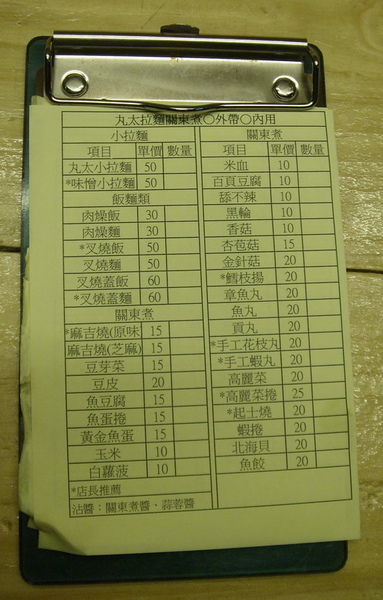 丸太拉麵關東煮○外帶○內用
小拉麵
項目 單價 數量
丸太小拉麵 50
*味憎小拉麵 50
飯麵類
肉燥飯 30
肉燥麵 30
*叉燒飯 50
叉燒麵 50
叉燒蓋飯 60
*叉燒蓋麵 60
關東煮
*麻吉燒(原味 15
麻吉燒(芝麻) 15
豆芽菜 15
豆皮 20
魚豆腐 15
魚蛋捲 15
黃金魚蛋 15
玉米 10
白蘿菠 10
*店長推薦
沾醬：關東煮醬，蒜蓉醬
關東煮
項目 單價 數量
米血 10
百頁豆腐 10
舔不辣 10
黑輪 10
香菇 10
杏苞菇 15
金針菇 20
*鱈枝揚 20
章魚丸 20
魚丸 20
貢丸 20
*手工花枝丸 20
*手工蝦丸 20
高麗菜 20
*高麗菜捲 25
*起士燒 20
蝦捲 20
北海貝 20
魚餃 20